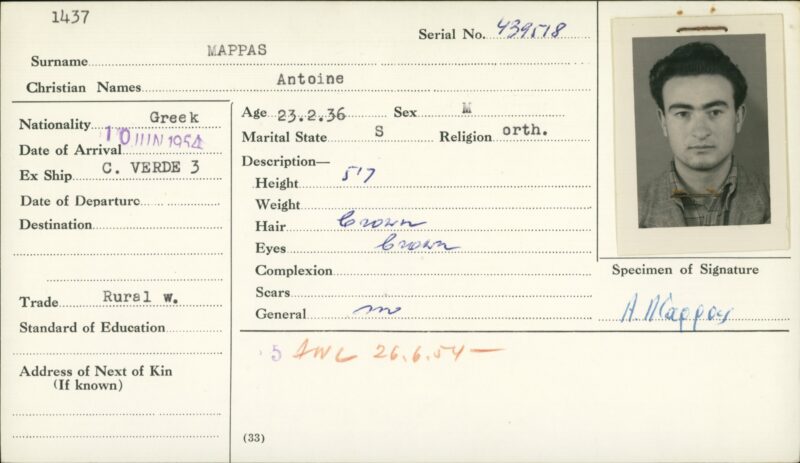 1437
Serial No. 439518
Surname MAPPAS
Christian Names Antoine
Nationality Greek
Date of Arrival 10 JUN 1954
Ex Ship C. VERDE 3
Date of Departure
Destination
Trade Rural w.
Standard of Education
Address of Next of Kin
(If known)
Age 23.2.36 Sex M
Marital State S Religion orth.
Description—
Height 5'7
Weight
Hair brown
Eyes brown
Complexion
Scars
General
5 AWL 26.6.54—
(33)
Specimen of Signature
A. Mappas